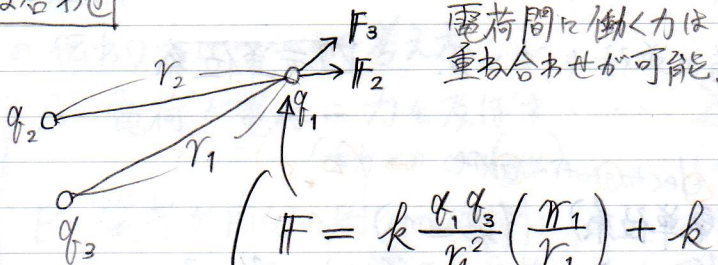 合わせ
電荷間に働く力は
重ね合わせが可能.
F₃
F₂
r₂
q₂
q₁
r₁
q₃
F = k q₁q₃/r₁² (r₁/r₁) + k